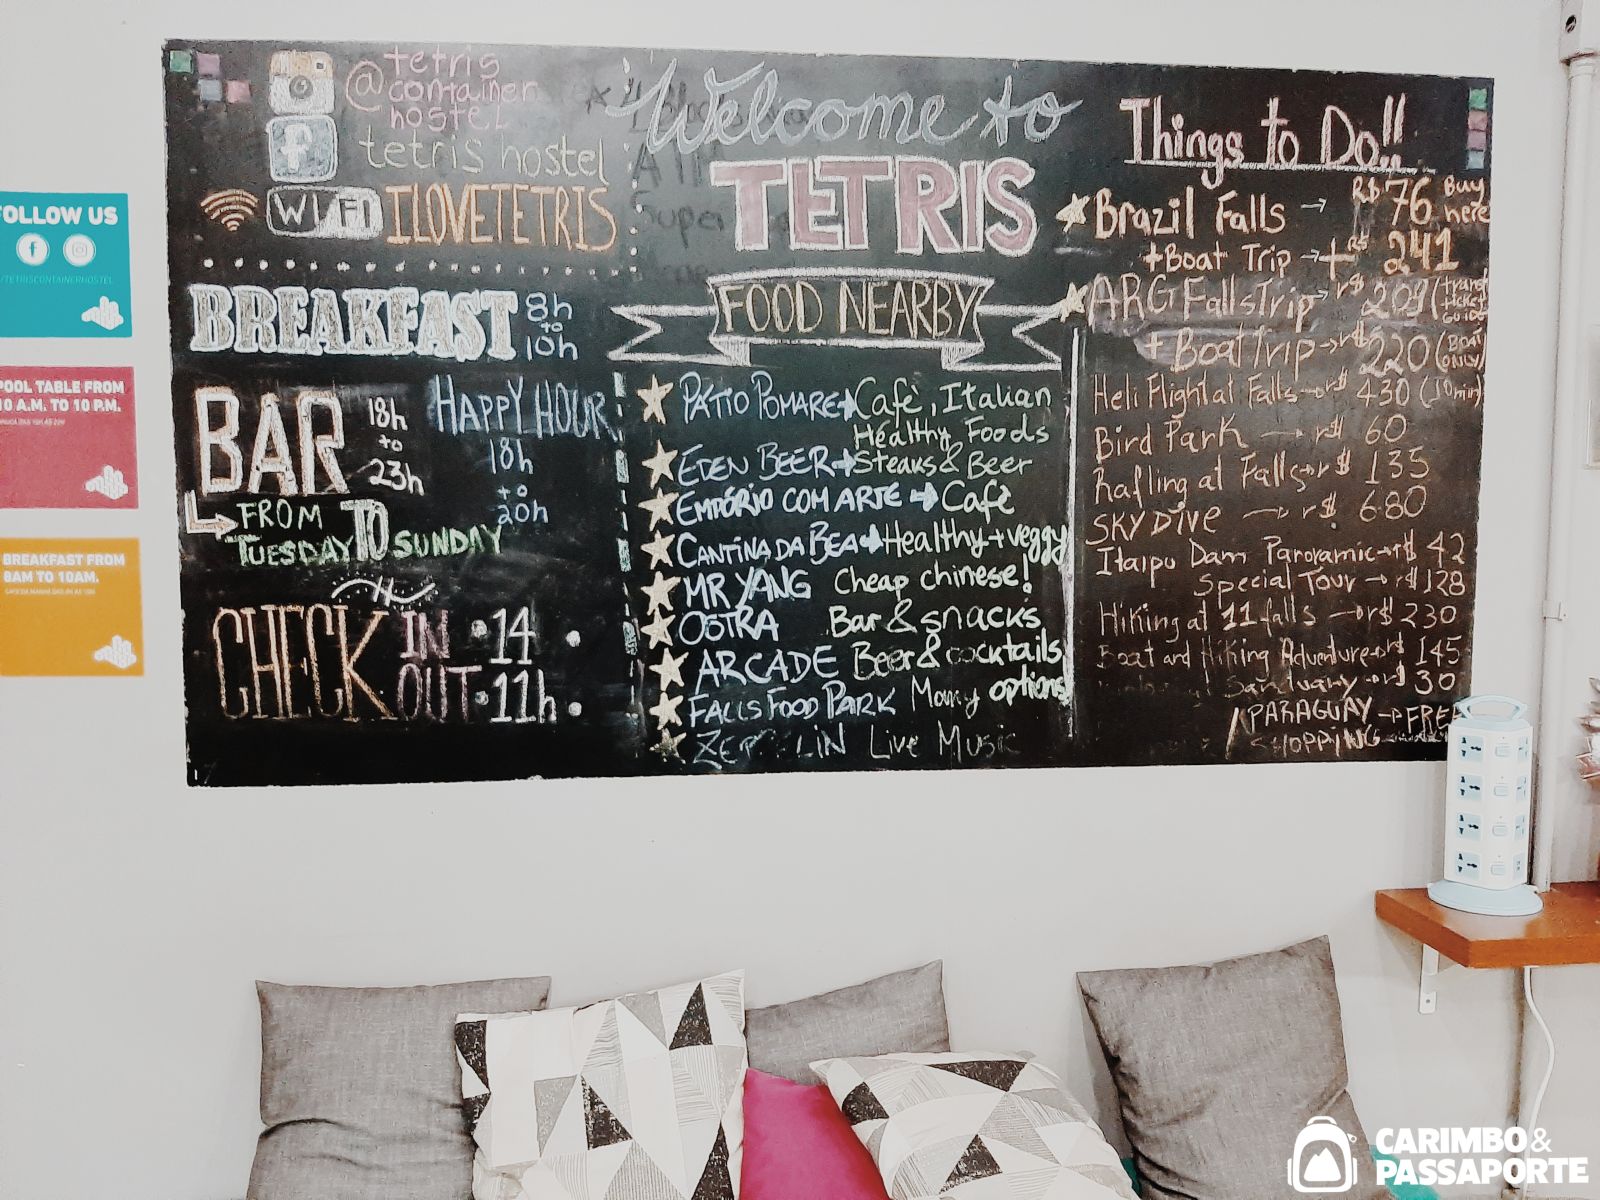 FOLLOW US
/TETRISCONTAINERHOSTEL
POOL TABLE FROM
10 A.M. TO 10 P.M.
BREAKFAST FROM
8AM TO 10AM.
@tetris
container
hostel
tetris hostel
WI FI ILOVETETRIS
BREAKFAST 8h
to
10h
BAR 18h
to
23h
HAPPY HOUR
18h
to
20h
FROM
TUESDAY TO SUNDAY
CHECK IN • 14 •
OUT • 11h •
Welcome to
TETRIS
FOOD NEARBY
PÁTIO POMARE → Cafè, Italian
Healthy Foods
EDEN BEER → Steaks & Beer
EMPÓRIO COM ARTE → Cafè
CANTINA DA BEA → Healthy + veggy
MR YANG Cheap chinese!
OSTRA Bar & snacks
ARCADE Beer & cocktails
FALLS FOOD PARK Many options
ZEPPELIN Live Music
Things to Do!!
Brazil Falls → R$ 76 Buy here
+ Boat Trip → + R$ 241
ARG Falls Trip → r$ 209 (
+ Boat Trip → r$ 220 (Boat ONLY)
Heli Flight at Falls → r$ 430 (10min)
Bird Park → r$ 60
Rafling at Falls → r$ 135
SKY DIVE → r$ 680
Itaipu Dam Panoramic → r$ 42
Special Tour → r$ 128
Hiking at 11 falls → r$ 230
Boat and Hiking Adventure → r$ 145
Sanctuary → r$ 30
PARAGUAY → FREE
SHOPPING
CARIMBO &
PASSAPORTE